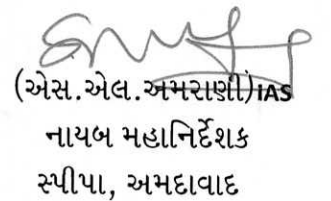 (એસ.એલ.અમરાણી)IAS
નાયબ મહાનિર્દેશક
સ્પીપા, અમદાવાદ